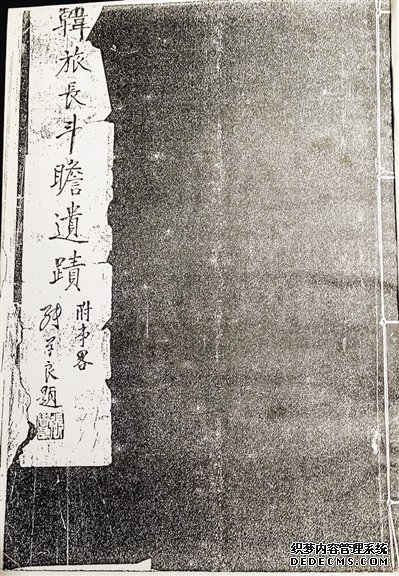 韓旅長斗瞻遺蹟
附事畧
張學良題
织梦内容管理系统
DEDECMS.COM